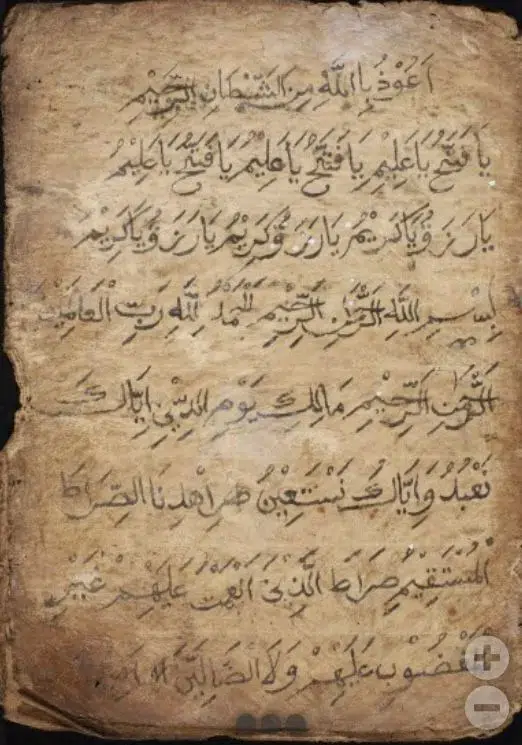 اَعُوْذُ بِا اللّٰهِ مِنَ الشَّيْطَانِ الرَّجِيْمِ
يَا فَتَّحُ يَا عَلِيْمِ يَا فَتَّحُ يَا عَلِيْمُ يَا فَتَّحُ يَا عَلِيْمُ
يَارَزَ قُ يَاكَرِيْمُ يَارَزَ قُ كَرِيْمُ يَارَزَ قُ يَاكَرِيْمُ
بِسْمِ اللّٰهِ الرَّحْمٰنِ الرَّحِيْمِ اَلْحَمْدُ لِلّٰهِ رَبِّ الْعَامَيْنَ
اَلرَّحْمٰنِ الرَّحِيْمِ مَالِكِ يَوْمِ الدِّيْنِ اِيَّاكَ
نَعْبُدُ وَاِيَّاكَ نَسْتَعِيْنُ اِهْدِنَا الصِّرَاطَ
الْمُسْتَقِيْمَ صِرَاطَ الَّذِيْنَ اَنْعَمْتَ عَلَيْهِمْ غَيْرِ
الْمَغْضُوْبِ عَلَيْهِمْ وَلَا الضَّالِيْنَ